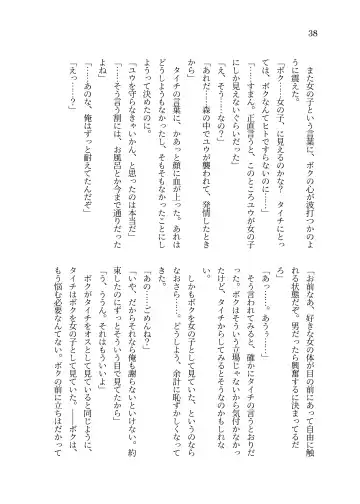 38
また女の子という言葉に、ボクの心が波打つかのよ
うに震えた。
「ボク……女の子、に見えるのかな？　タイチにとっ
ては、ボクなんてヒトですらないのに……」
「……すまん。正直言うと、このところユウが女の子
にしか見えないぐらいだった」
「え、そうっ……なの？」
「あれだ……森の中でユウが襲われて、発情したとき
から」
タイチの言葉に、かあっと顔に血が上った。あれは
どうしようもなかったし、そもそもなかったことにし
ようって決めたのに。
「ユウを守らなきゃいかん、と思ったのは本当だ」
「……そう言う割には、お風呂とか今まで通りだった
よね」
「……あのな、俺はずっと耐えてたんだぞ」
「えっ……？」
「お前なあ、好きな女の体が目の前にあって自由に触
れる状態だぞ。男だったら興奮するに決まってるだ
ろ」
「あっ……。あぅぅ……」
そう言われてみると、確かにタイチの言うとおりだ
った。ボクはそういう立場じゃないから気付かなかっ
たけど、タイチからしてみるとそうなのかもしれな
い。
しかもボクを女の子として見ていた、というのなら
なおさら……。どうしよう、余計に恥ずかしくなって
「あの……ごめんね？」
「いや、だからそれなら俺も謝らないといけない。約
束したのにずっとそういう目で見てたから」
「う、ううん。それはもういいよ」
ボクがタイチをオスとして見ていると同じように、
タイチはボクを女の子として見ていた。――ボクは、
もう悩む必要なんてない。ボクの前に立ちはだかって